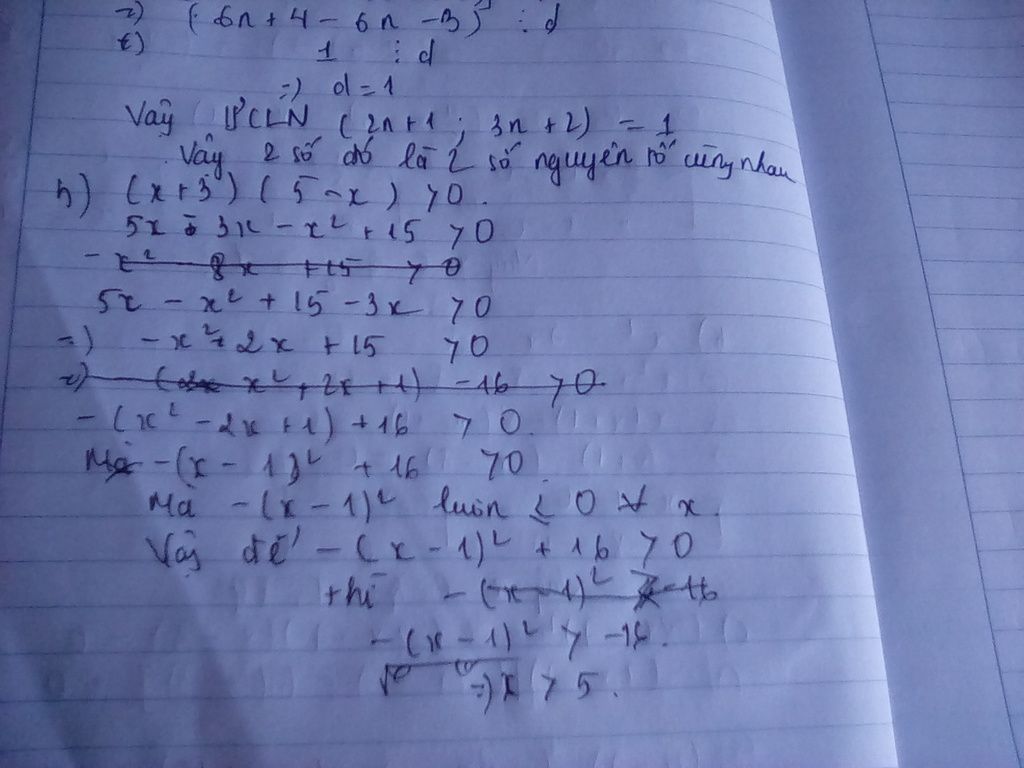 =) (6n + 4 - 6n - 3) ⋮ d
1 ⋮ d
=) d = 1
Vậy ƯCLN (2n+1 ; 3n+2) = 1
Vậy 2 số đó là 2 số nguyên tố cùng nhau
h) (x+3) (5-x) > 0.
5x - 3x - x² + 15 > 0
- x² 8x + 15 > 0
5x - x² + 15 - 3x > 0
=) - x² + 2x + 15 > 0
=) ( x² + 2x + 1) - 16 > 0
- (x² - 2x + 1) + 16 > 0.
Mà - (x - 1)² + 16 > 0
Mà - (x - 1)² luôn ≤ 0 ∀ x.
Vậy để - (x - 1)² + 16 > 0
thì - (x - 1)² - 16
- (x - 1)² > -16.
=) x > 5.